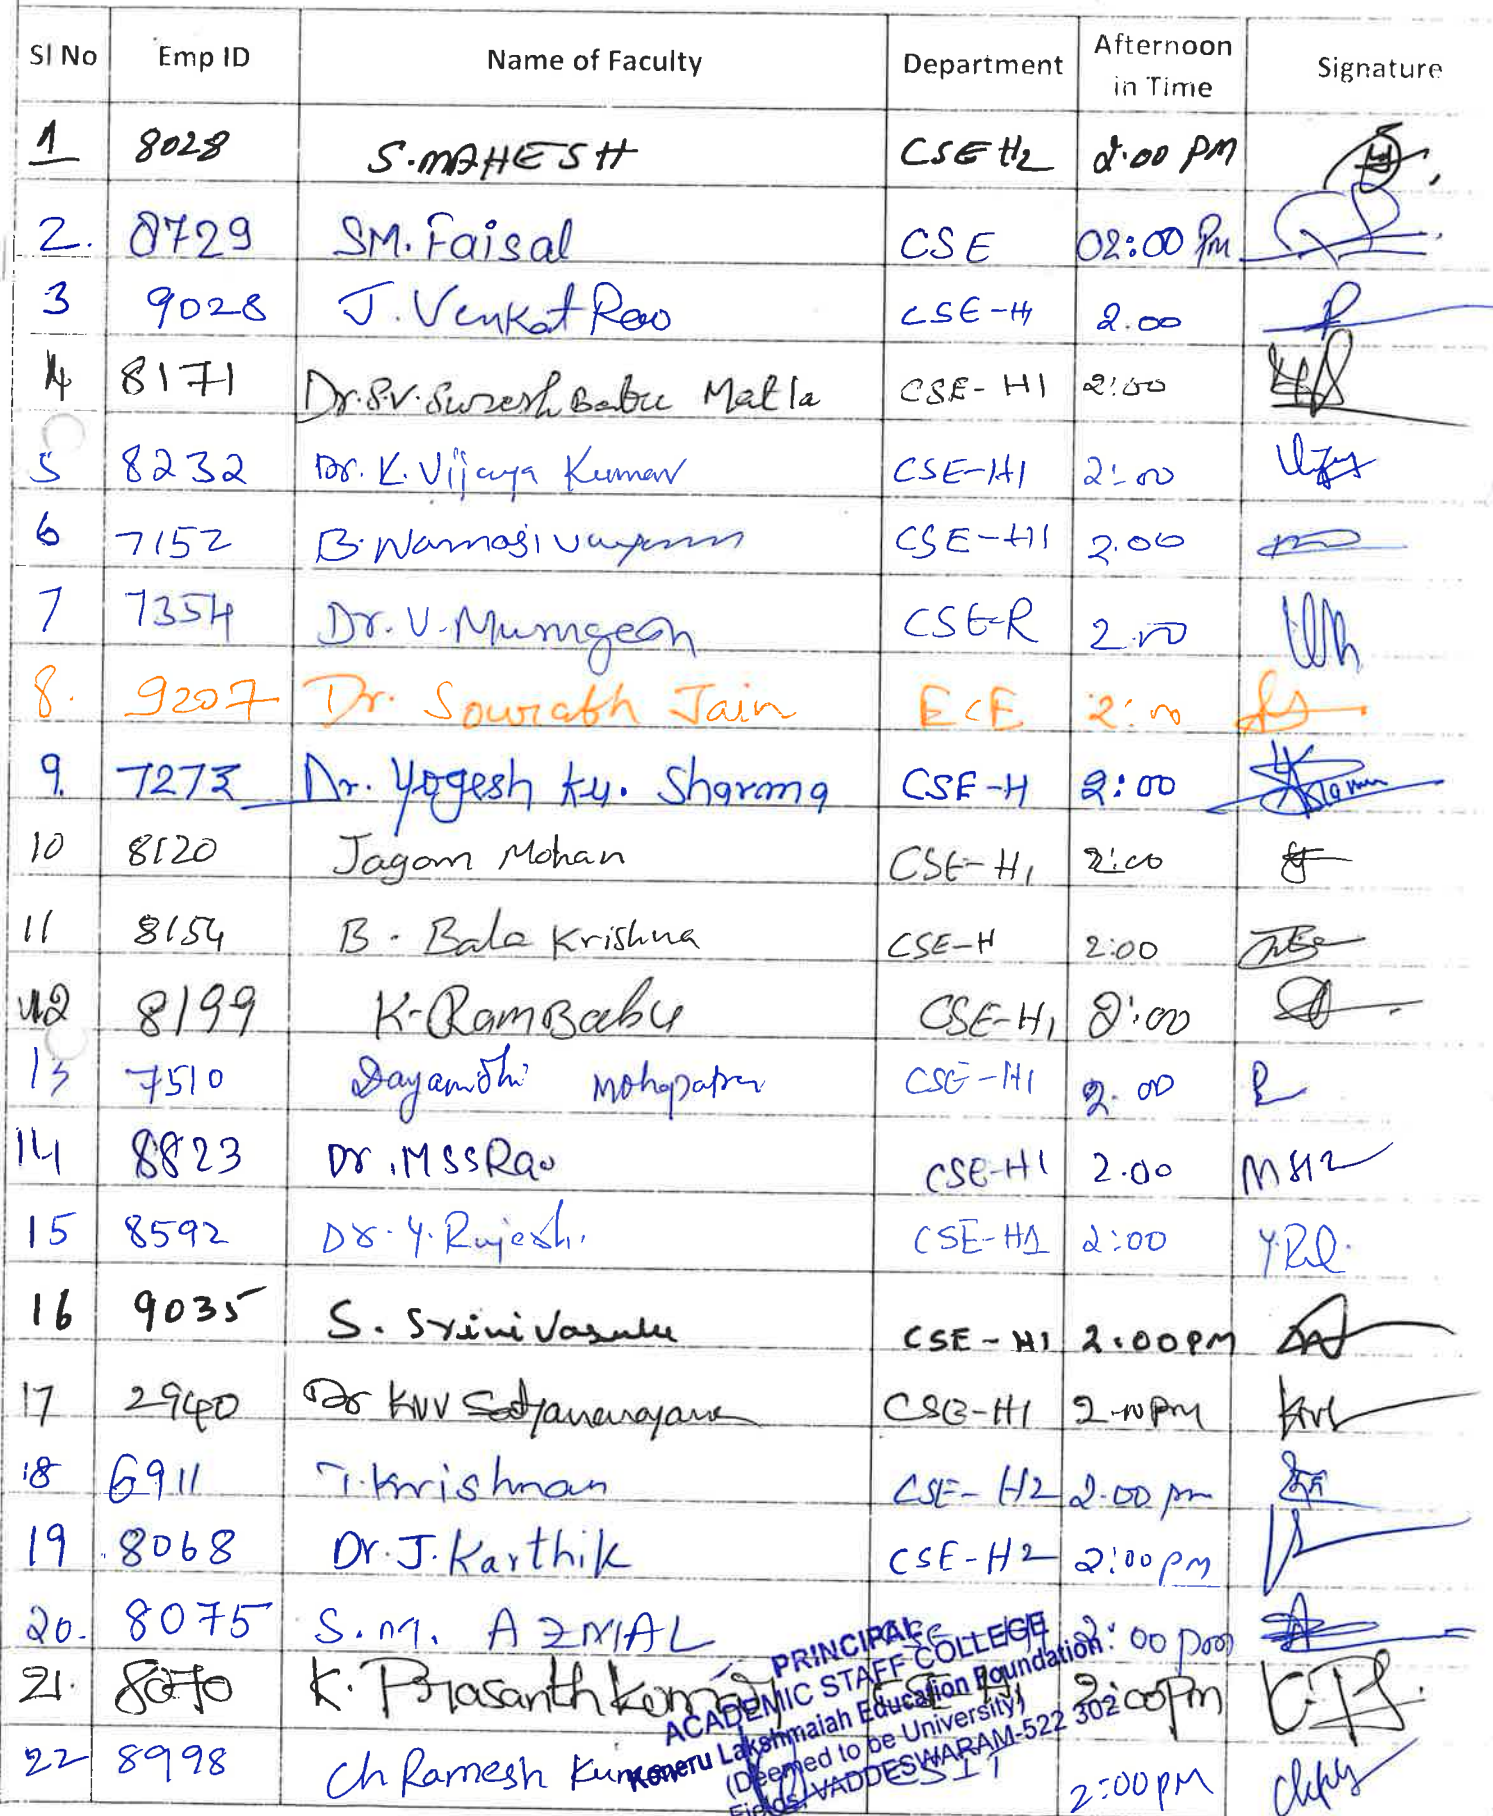 Sl No Emp ID Name of Faculty Department Afternoon in Time Signature
1 8028 S.MAHESH CSE H2 2.00 PM
2. 8729 SM. Faisal CSE 02:00 Pm
3 9028 J. Venkat Rao CSE-H 2.00
4 8171 Dr.S.V. Suresh Babu Matla CSE-H1 2:00
5 8232 Dr. K. Vijaya Kumar CSE-H1 2:00
6 7152 B. Namasivayam CSE-H1 2.00
7 7354 Dr. V. Murugesan CSE-R 2.00
8. 9207 Dr. Sourabh Jain ECE 2:00
9. 7273 Dr. Yogesh Ku. Sharma CSE-H 2:00
10 8120 Jagan Mohan CSE-H1 2:00
11 8154 B. Bala Krishna CSE-H 2:00
12 8199 K. RamBabu CSE-H1 2:00
13 7510 Dayanidhi Mohapatra CSE-H1 2.00
14 8823 Dr. MSSRao CSE-H1 2.00
15 8592 Dr. Y. Rajesh. CSE-H1 2:00 Y.
16 9035 S. Srinivasulu CSE-H1 2.00PM
17 2940 Dr KVV Satyanarayana CSE-H1 2.00PM
18 6911 T. Krishnan CSE-H2 2.00 pm
19 8068 Dr. J. Karthik CSE-H2 2:00 pm
20. 8075 S.M. AZMAL 2:00 pm
21. 8070 K. Prasanth Kumar CSE-H1 2:00pm
22 8998 Ch Ramesh Kumar CSIT 2:00PM
PRINCIPAL
ACADEMIC STAFF COLLEGE
Koneru Lakshmaiah Education Foundation
(Deemed to be University)
Fields, VADDESWARAM-522 302